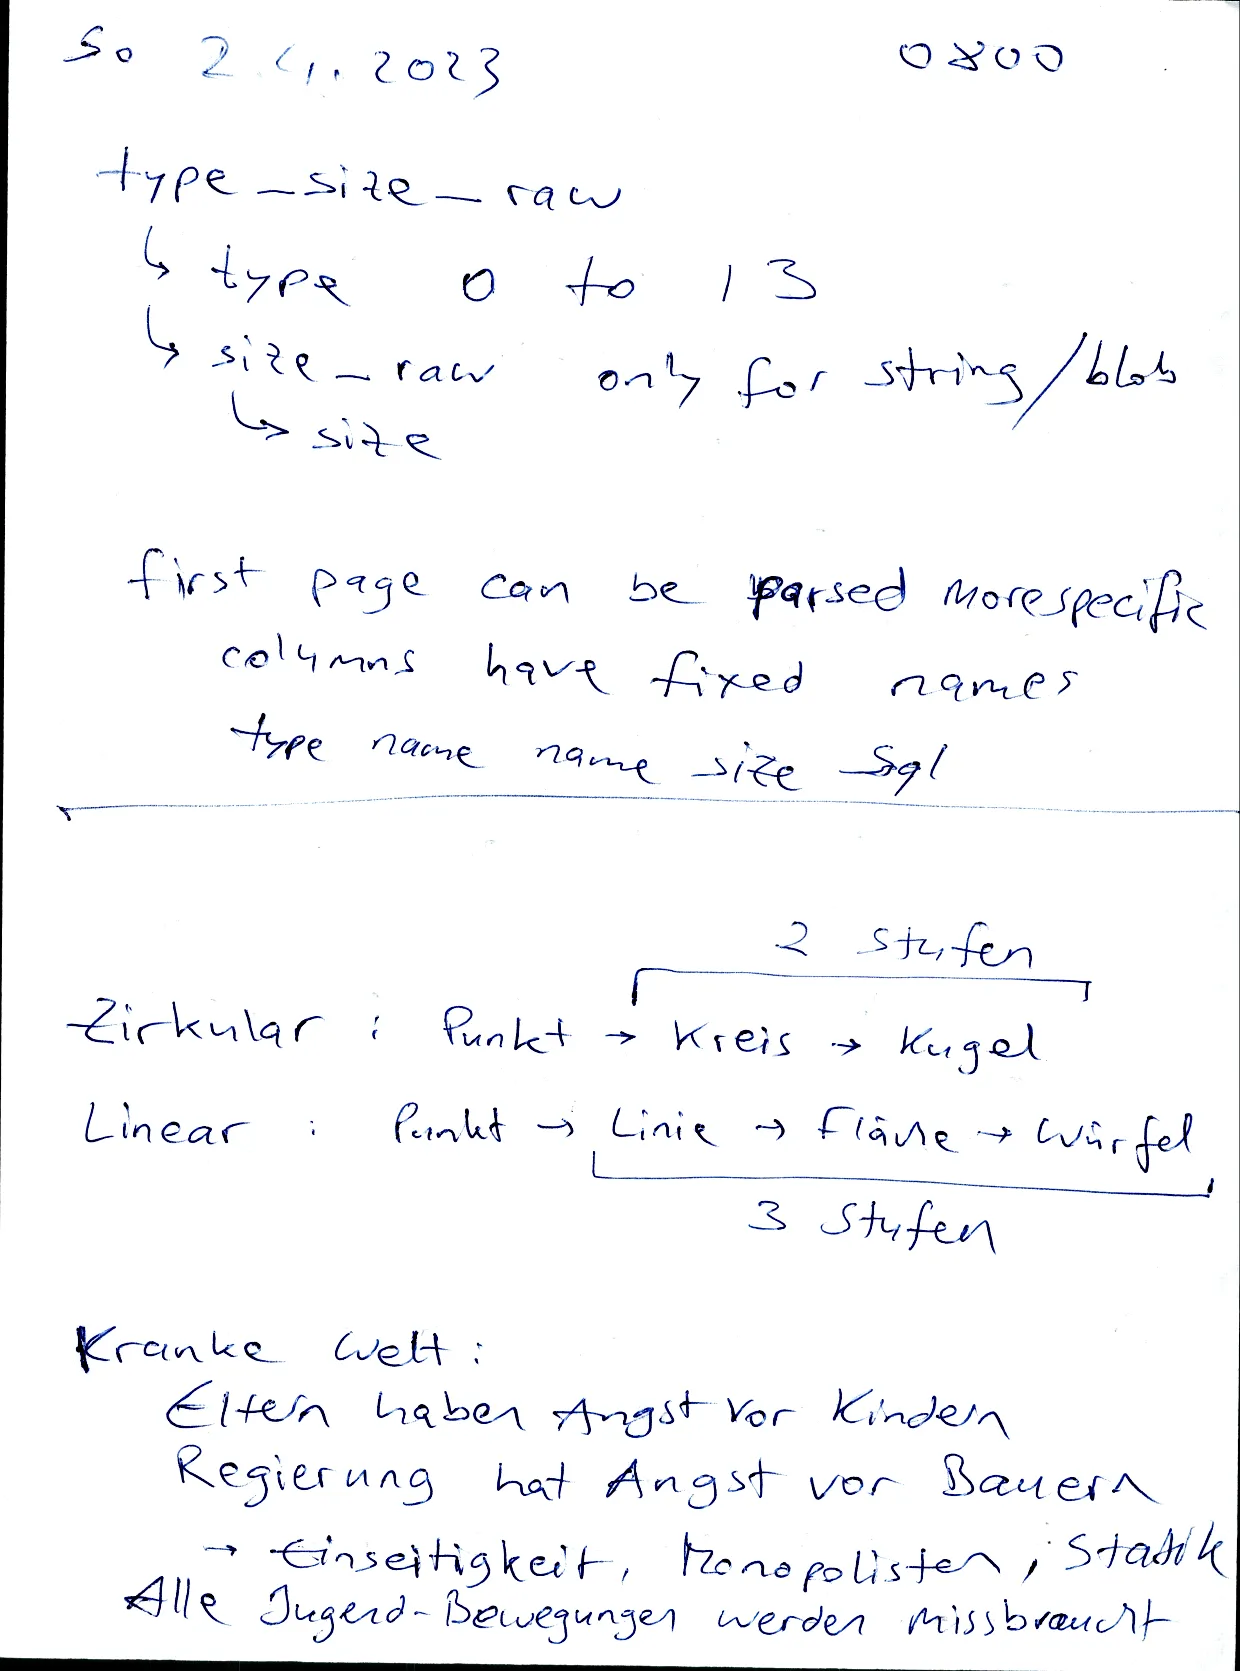 So 2.4.2023 0800
type_size_raw
↳ type 0 to 13
↳ size_raw only for string/blob
↳ size
first page can be parsed more specific
columns have fixed names
type name name size sql
2 Stufen
Zirkular : Punkt → Kreis → Kugel
Linear : Punkt → Linie → Fläche → Würfel
3 Stufen
Kranke Welt :
Eltern haben Angst vor Kindern
Regierung hat Angst vor Bauern
→ Einseitigkeit, Monopolisten, Statik
Alle Jugend-Bewegungen werden missbraucht